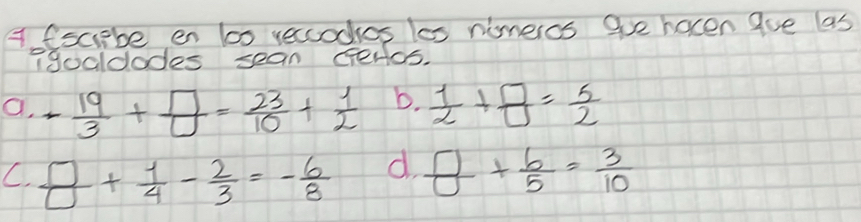 4 Escribe en los recuadros los números que hacen que las
igualdades sean ciertas.
a. - 19/3 + □/□ = 23/10 + 1/2 b. 1/2 + □/□ = 5/2
c. □/□ + 1/4 - 2/3 = - 6/8 d. □/□ + 6/5 = 3/10